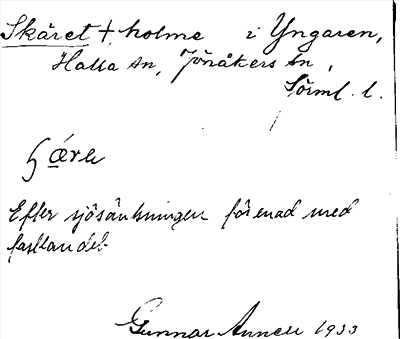 Skäret +, holme i Yngaren,
Halla sn, Jönåkers hd,
Sörml. l.
Efter sjösänkningen förenad med
fastlandet.
Gunnar Annell 1933